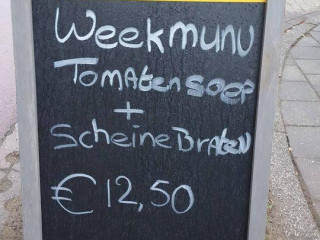 Weekmunu
Tomatensoep
+
ScheineBraten
€12,50